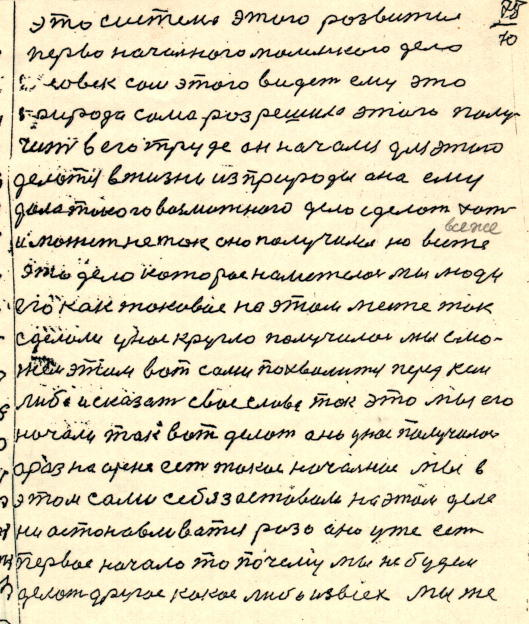 75
70
это система этого розвития
перво началного маленкого дело
человек сам этого видет ему это
природа сама розрешила этого полу-
чит в его труде он начали для этого
делати в жизни из природи она ему
дала такого возможного дело сделот хот
всеже
и может не так оно получимо но всеже
это дело которое наметелос мы люди
его как таковое на этом месте так
сделали у нас кругло получилос мы смо-
жем этим вот сами похвалитя перед кем
либо и сказат свое слово так это мы его
начали так вот делот оно у нас получилос
а раз на арене ест такое началное мы в
этом сами себя заставом на этом деле
ни астонавливатя розо оно уже ест
первое начало то почему мы не будем
делот другое какое либо из всех мы же